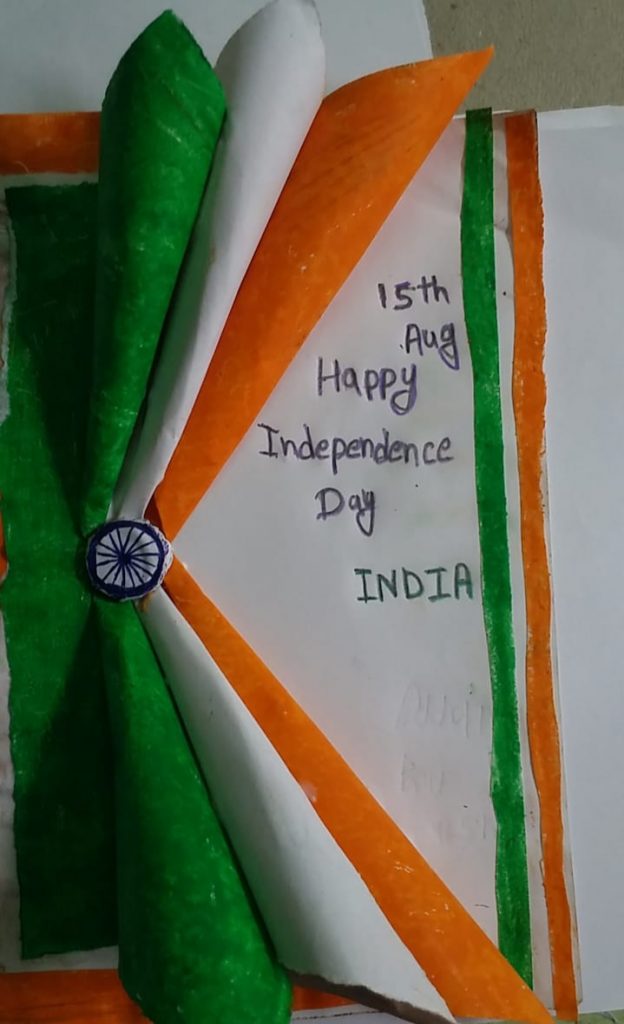 15th
Aug
Happy
Independence
Day
INDIA